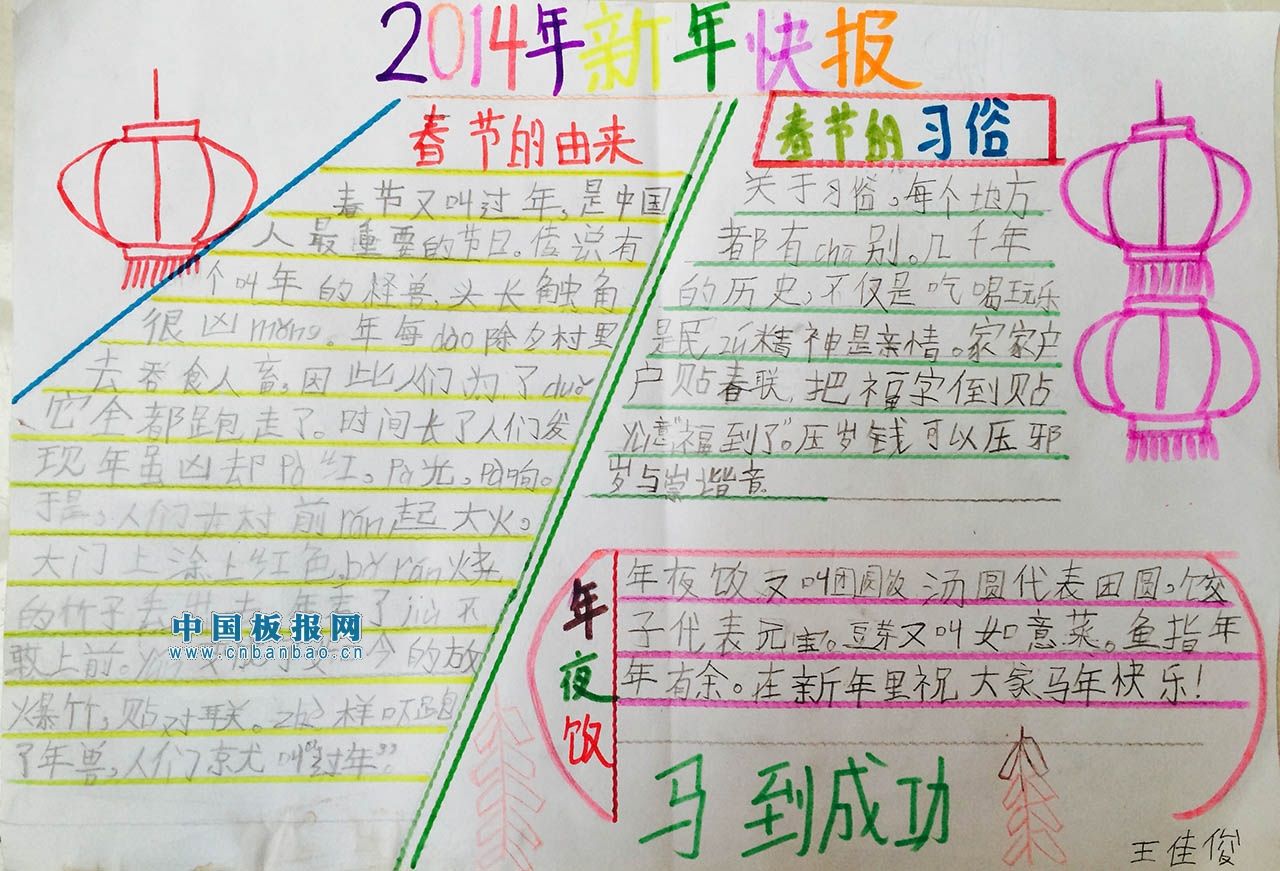 2014年新年快报
春节的由来
春节又叫过年,是中国
人最重要的节日。传说有
个叫年的怪兽,头长触角
很凶měng。年每dào除夕村里
去吞食人畜,因此人们为了duǒ
它全都跑走了。时间长了人们发
现年虽凶却pà红。pà光。pà响。
于是,人们在村前rán起大火。
大门上涂上红色,bǎ rán烧
的竹子丢 年 了jiù不
敢上前。 今的放
爆竹,贴对联。zhè样吓跑
了年兽,人们京尤叫“过年”
春节的习俗
关于习俗,每个地方
都有chā别。几千年
的历史,不仅是吃喝玩乐
是民zú精神是亲情。家家户
户贴春联,把福字倒贴
yù意“福到了”。压岁钱可以压邪
岁与祟谐音
年夜饭
年夜饭又叫团圆饭 汤圆代表团圆。饺
子代表元宝。豆芽又叫如意菜。鱼指年
年有余。在新年里祝大家马年快乐!
马到成功
王佳俊
中国板报网
www.cnbanbao.cn